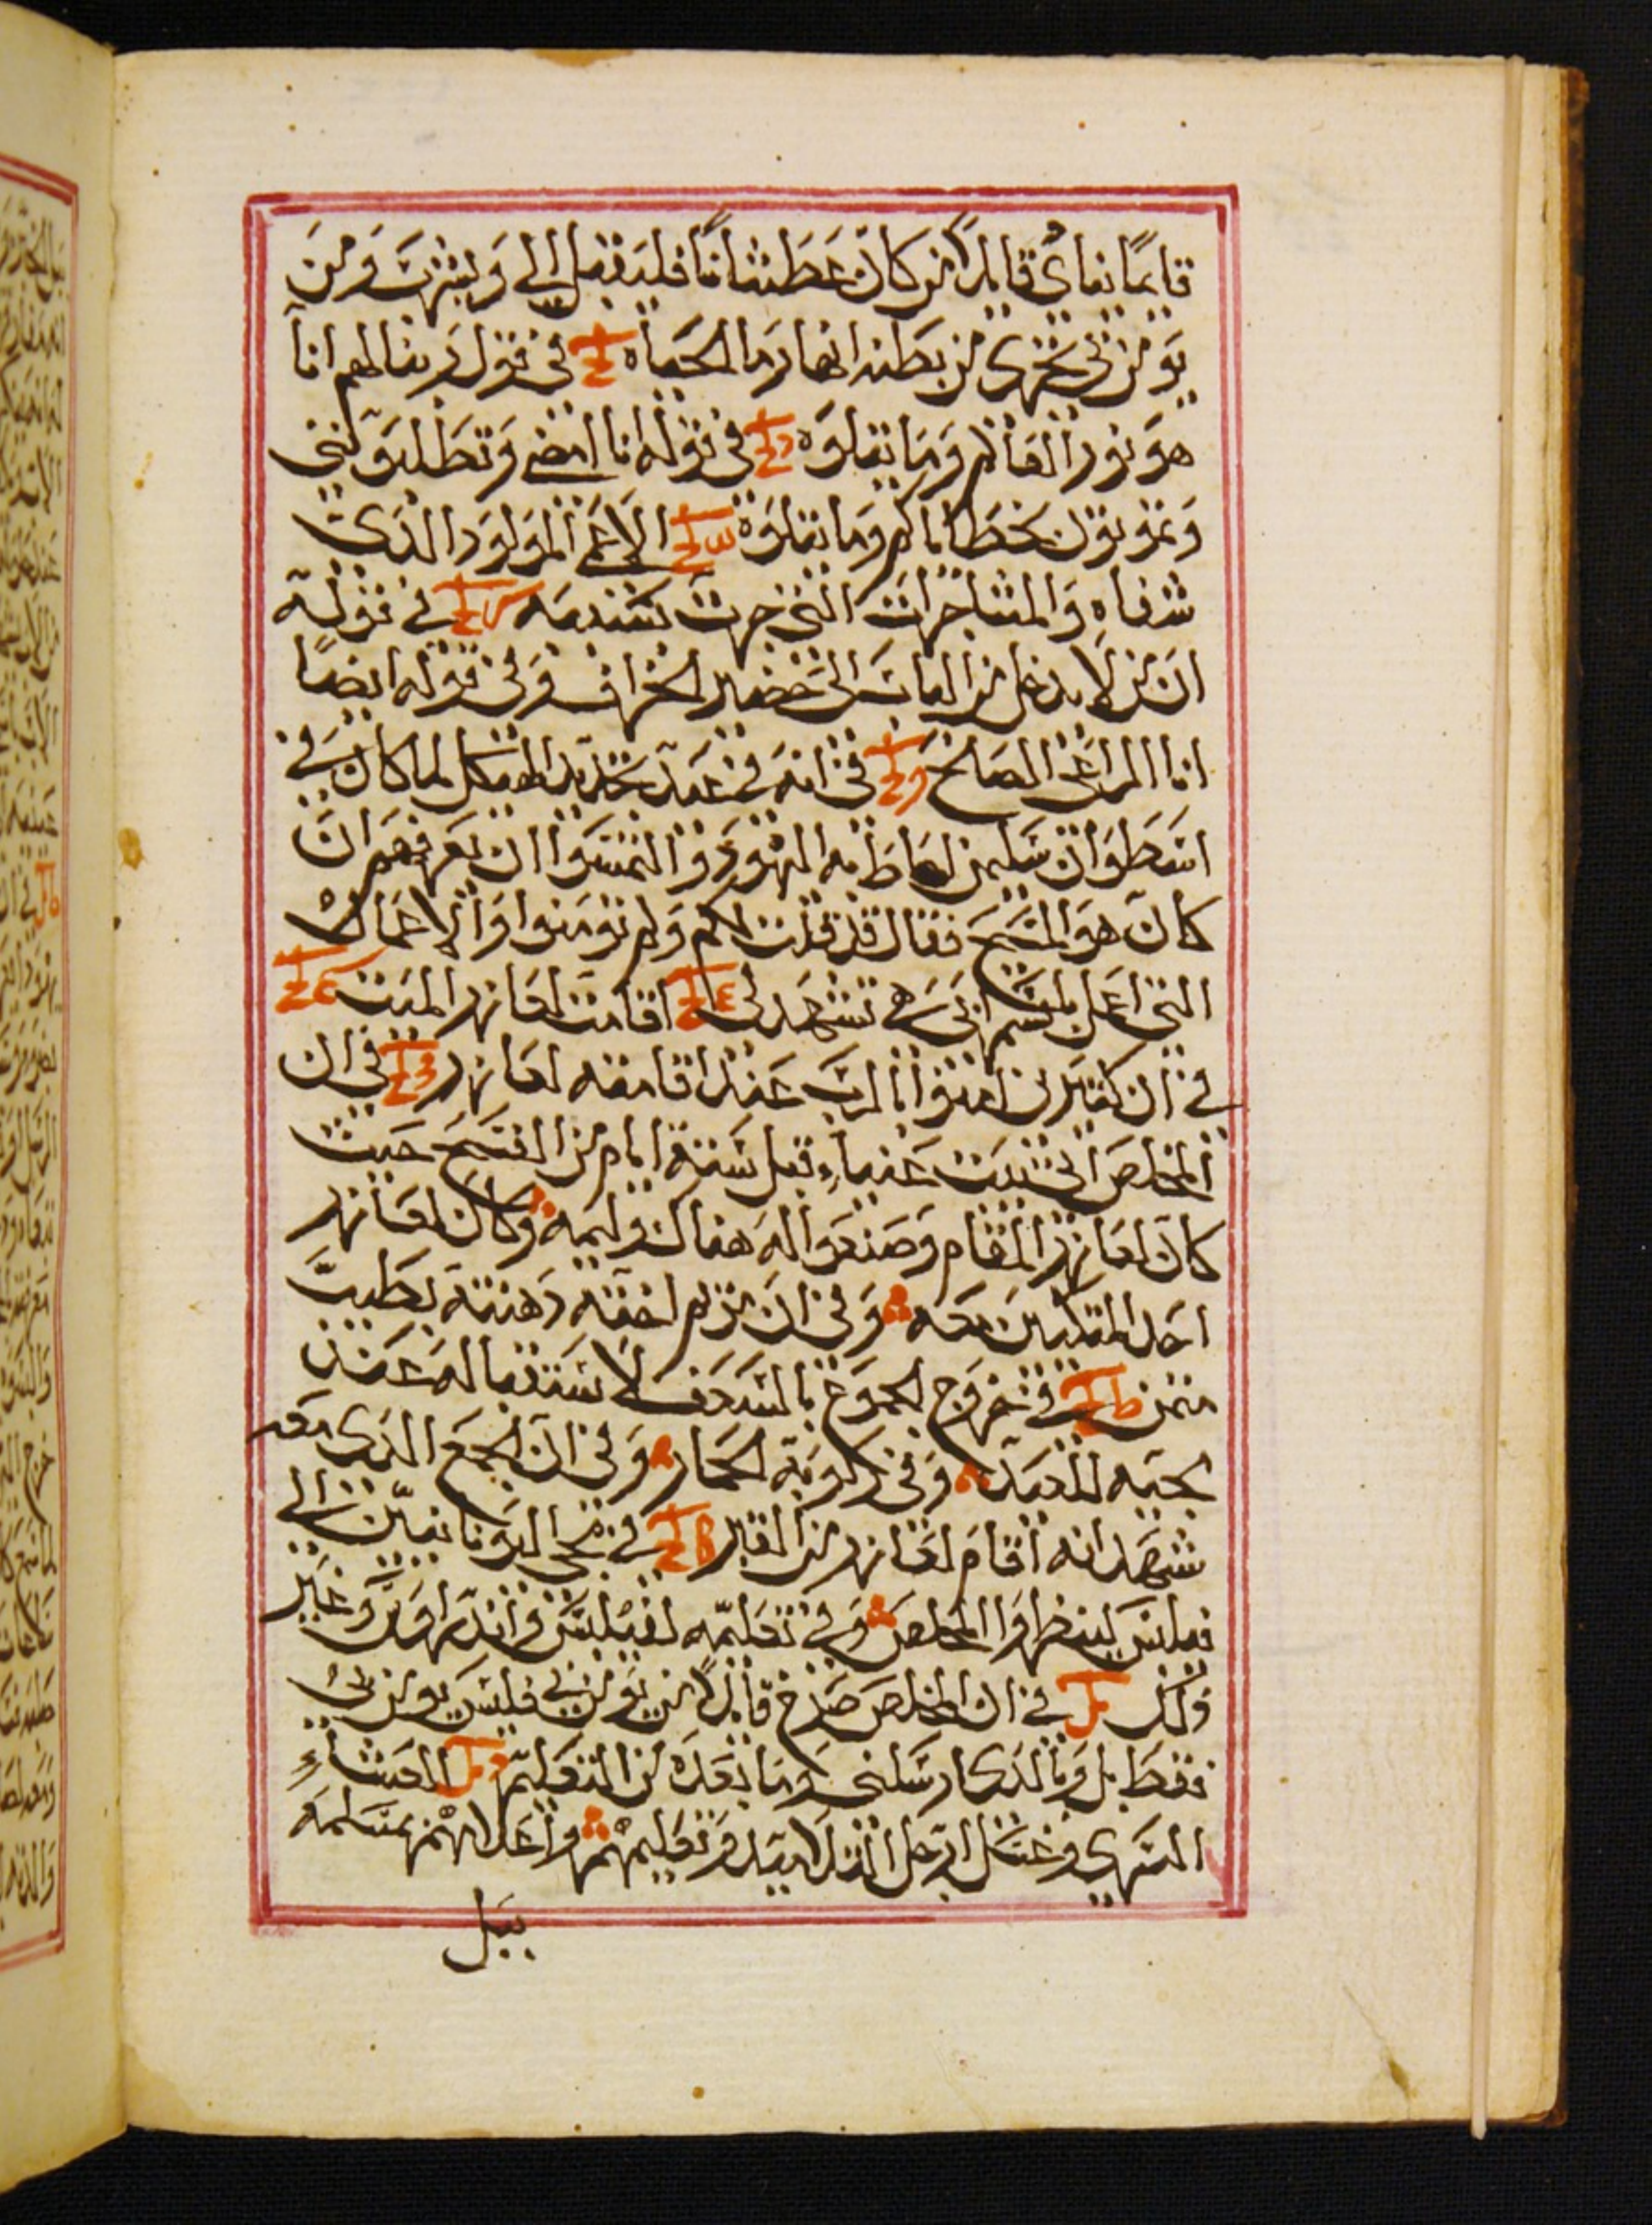 قايمًا ينادى قايلًا من كان عَطشانًا فليقبل الي وَيشرب وَمَن
يَومن بي تجرى من بطنه انهار ما الحياه في قول ربنا لهم انا
هوَ نور العَالم وَمَا يتلوَه في قوله انا امضي وَتطلبوَنني
وَتموتون بخطاياكم وَما يتلوَه الاعَمى المَولوَد الذى
شفاه وَالمشاجرات التي جرت بسَببه في قوله
ان من لا يدخل من الباب الى حَضير الخراف وَفي قوله ايضًا
انا الراعَي الصالح في انه في عَيد تجديد الهيكل لما كان في
اسَطوَان سَليمن احَاط به اليهود وَالتمسَوا ان يعَرفهم ان
كان هوَ المسَيح فقال قد قلت لكم وَلم تومنوا وَالاعَمال
التي اعَمل باسم ابي هي تشهَد لي اقامت لعَازر الميت
في ان كثيرين امنوا بالربَ عَند اقامته لعَازر في ان
المخلص اتى بيت عَنيا قبل سَتة ايام من الفسَح حَيث
كان لعَازر المقام وَصنعَوا له هناك وليمه وَكان لعَازر
احَد المتكيين معَه وَفي ان مريم اخته دَهنته بطيبَ
مثمن في خرَوج الجموَع بالسَعَف لاسَتقباله عَند
مجيه للعَيد وَفي ركوبه الحَمار وَفي ان الجمعَ الذى معَه
شهَد انه اقام لعَازر من القبر في مجي اليوَنانيين الي
فيلبسَ لينظروَا المخلص وَفي تعَليمه لفيلبسَ وَاندَراوسَ وَغير
ذلك في ان المخلص صرَخ قايلًا من يومن بي فليسَ يومن بي
فقط بل وَبالذى ارسَلني وَمَا بعَدَه من التعَليم العَشاء
السَري وغسَل ارجل التلاميَد وَتعَليمهم وَاعَلامهم بمسَلمه
بيَل